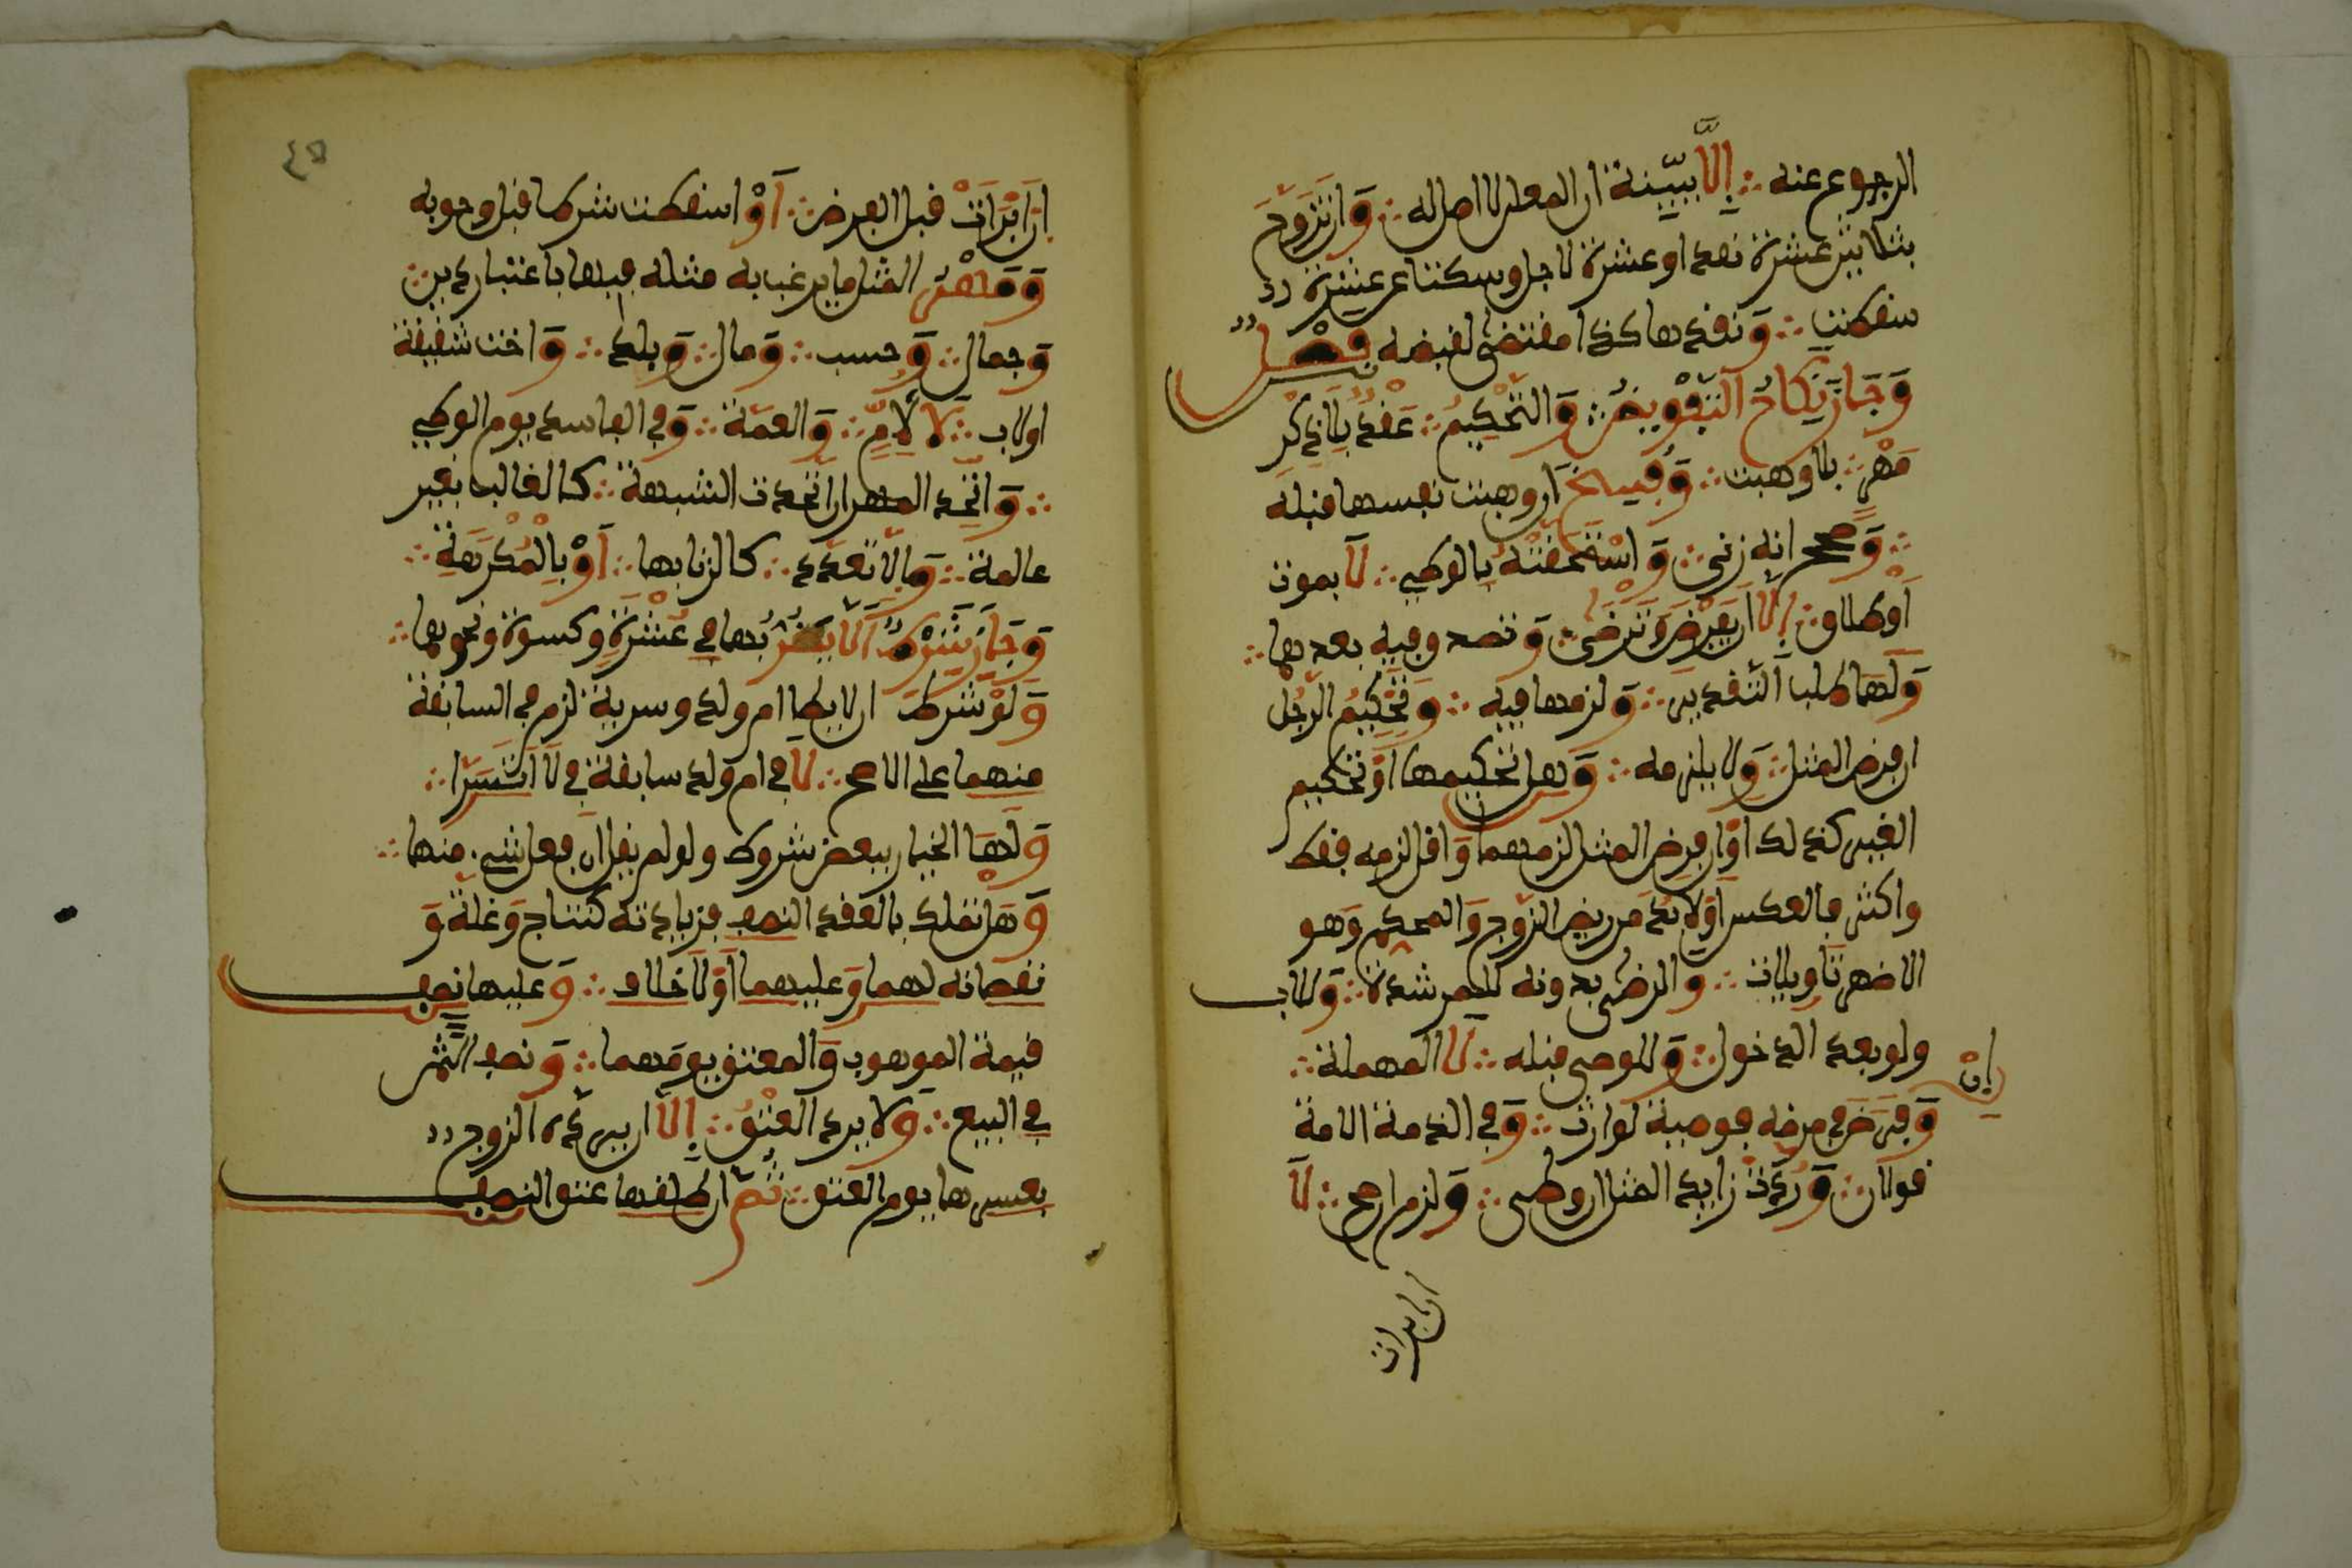 الرجوع عنه ؞ إلَّا ببيّنة ان المعلن لا اصل له ؞ وَان تَزَوَّجَ
بثلاثين عشرة نقدا وعشرة لاجل وسكتا عن عشرة
سقطت ؞ وَنقدها كذا مقتض لقبضه فصْل
وَجَازَ نِكَاحُ التَّفْوِيضُ ؞ وَالتَّحْكِيمُ ؞ عَقْدٌ بِلَا ذِكْرِ
مَهْرٍ ؞ بلا وهبت ؞ وَفُسِخَ ان وهبت نفسها قبله
؞ وَصحح انه زنى ؞ وَاسْتَحَقَّتْهُ بِالوطىء ؞ لَا بموت
أَوْ طلاق ؞ إِلَّا ان يَفْرِضَ وَتَرْضَى ؞ وَتصدق فيه بعدها ؞
وَلَهَا طلب التَّقدير ؞ وَلزمها فيه ؞ وَتَحْكِيمُ الرَّجُلِ
ان فرض المثل ؞ وَلا يلزمه ؞ وَهل تحكيمها أَوْ تحكيم
الغير كذلك أَوْ ان فرض المثل لزمهما وَاقل لزمه فقط
واكثر فالعكس أَوْ لا بُدَّ من رضى الزّوج وَالمحكم وَهو
الاظهر تَاويلات ؞ وَالرضى بدونه للمرشدة ؞ وَللاب
ولو بعد الدخول ؞ وَللوصى قبله ؞ لَا المهملة ؞
إِنْ
وَفَرَضَ في مرضه فوصية لوارث ؞ وَفي الذمة الامة
قولان ؞ وَرَدَّتْ زايد المثل ان وطىء ؞ وَلزم ان صح ؞ لَا
ان ابرات
٤٥
ان أَبْرَأَتْ قبل الفرض ؞ أَوْ اسقطت شرطا قبل وجوبه
وَمَهْرُ المثل ما يرغب به مثله فيها باعتبار دين ؞
وَجمال ؞ وَحسب ؞ وَمال ؞ وَبلد ؞ وَاخت شقيقة
او لاب ؞ لَا لِأُمِّ ؞ وَالعمّة ؞ وَفي الفاسد يوم الوطىء
؞ وَاتّحد المهر ان اتّحدت الشبهة ؞ كالغالط بغير
عالمة ؞ وَإلّا تعدّد ؞ كالزنا بها ؞ أَوْ بِالْمُكْرَهَةِ ؞
وَجَازَ شَرْطُ أَلَّا يَضُرَّ بُها في عُشْرَةٍ وكسوة ونحوها ؞
وَلَوْ شَرطَ ان لا يطا ام ولد وسرية لزم في السابقة
منهما على الاصح ؞ لَا في ام وَلد سابقة في لَا اتسَرَّا ؞
وَلَهَا الخيار ببعض شروط ولو لم يقل ان فعل شيء منها ؞
وَهَل تملك بالعقد النصف فزيادته كنتاج وَغلة وَ
نقصانه لهما وَعليهما أَوْ لَا خلاف ؞ وَعليها نصف
قيمة الموهوب وَالمعتق يومَهما ؞ وَنصف الثمن
في البيع ؞ وَلا يرد العتْقُ ؞ إِلَّا ان يردّه الزوج
بعسرها يوم العتق ؞ ثُمَّ ان طلقها عتق النصف